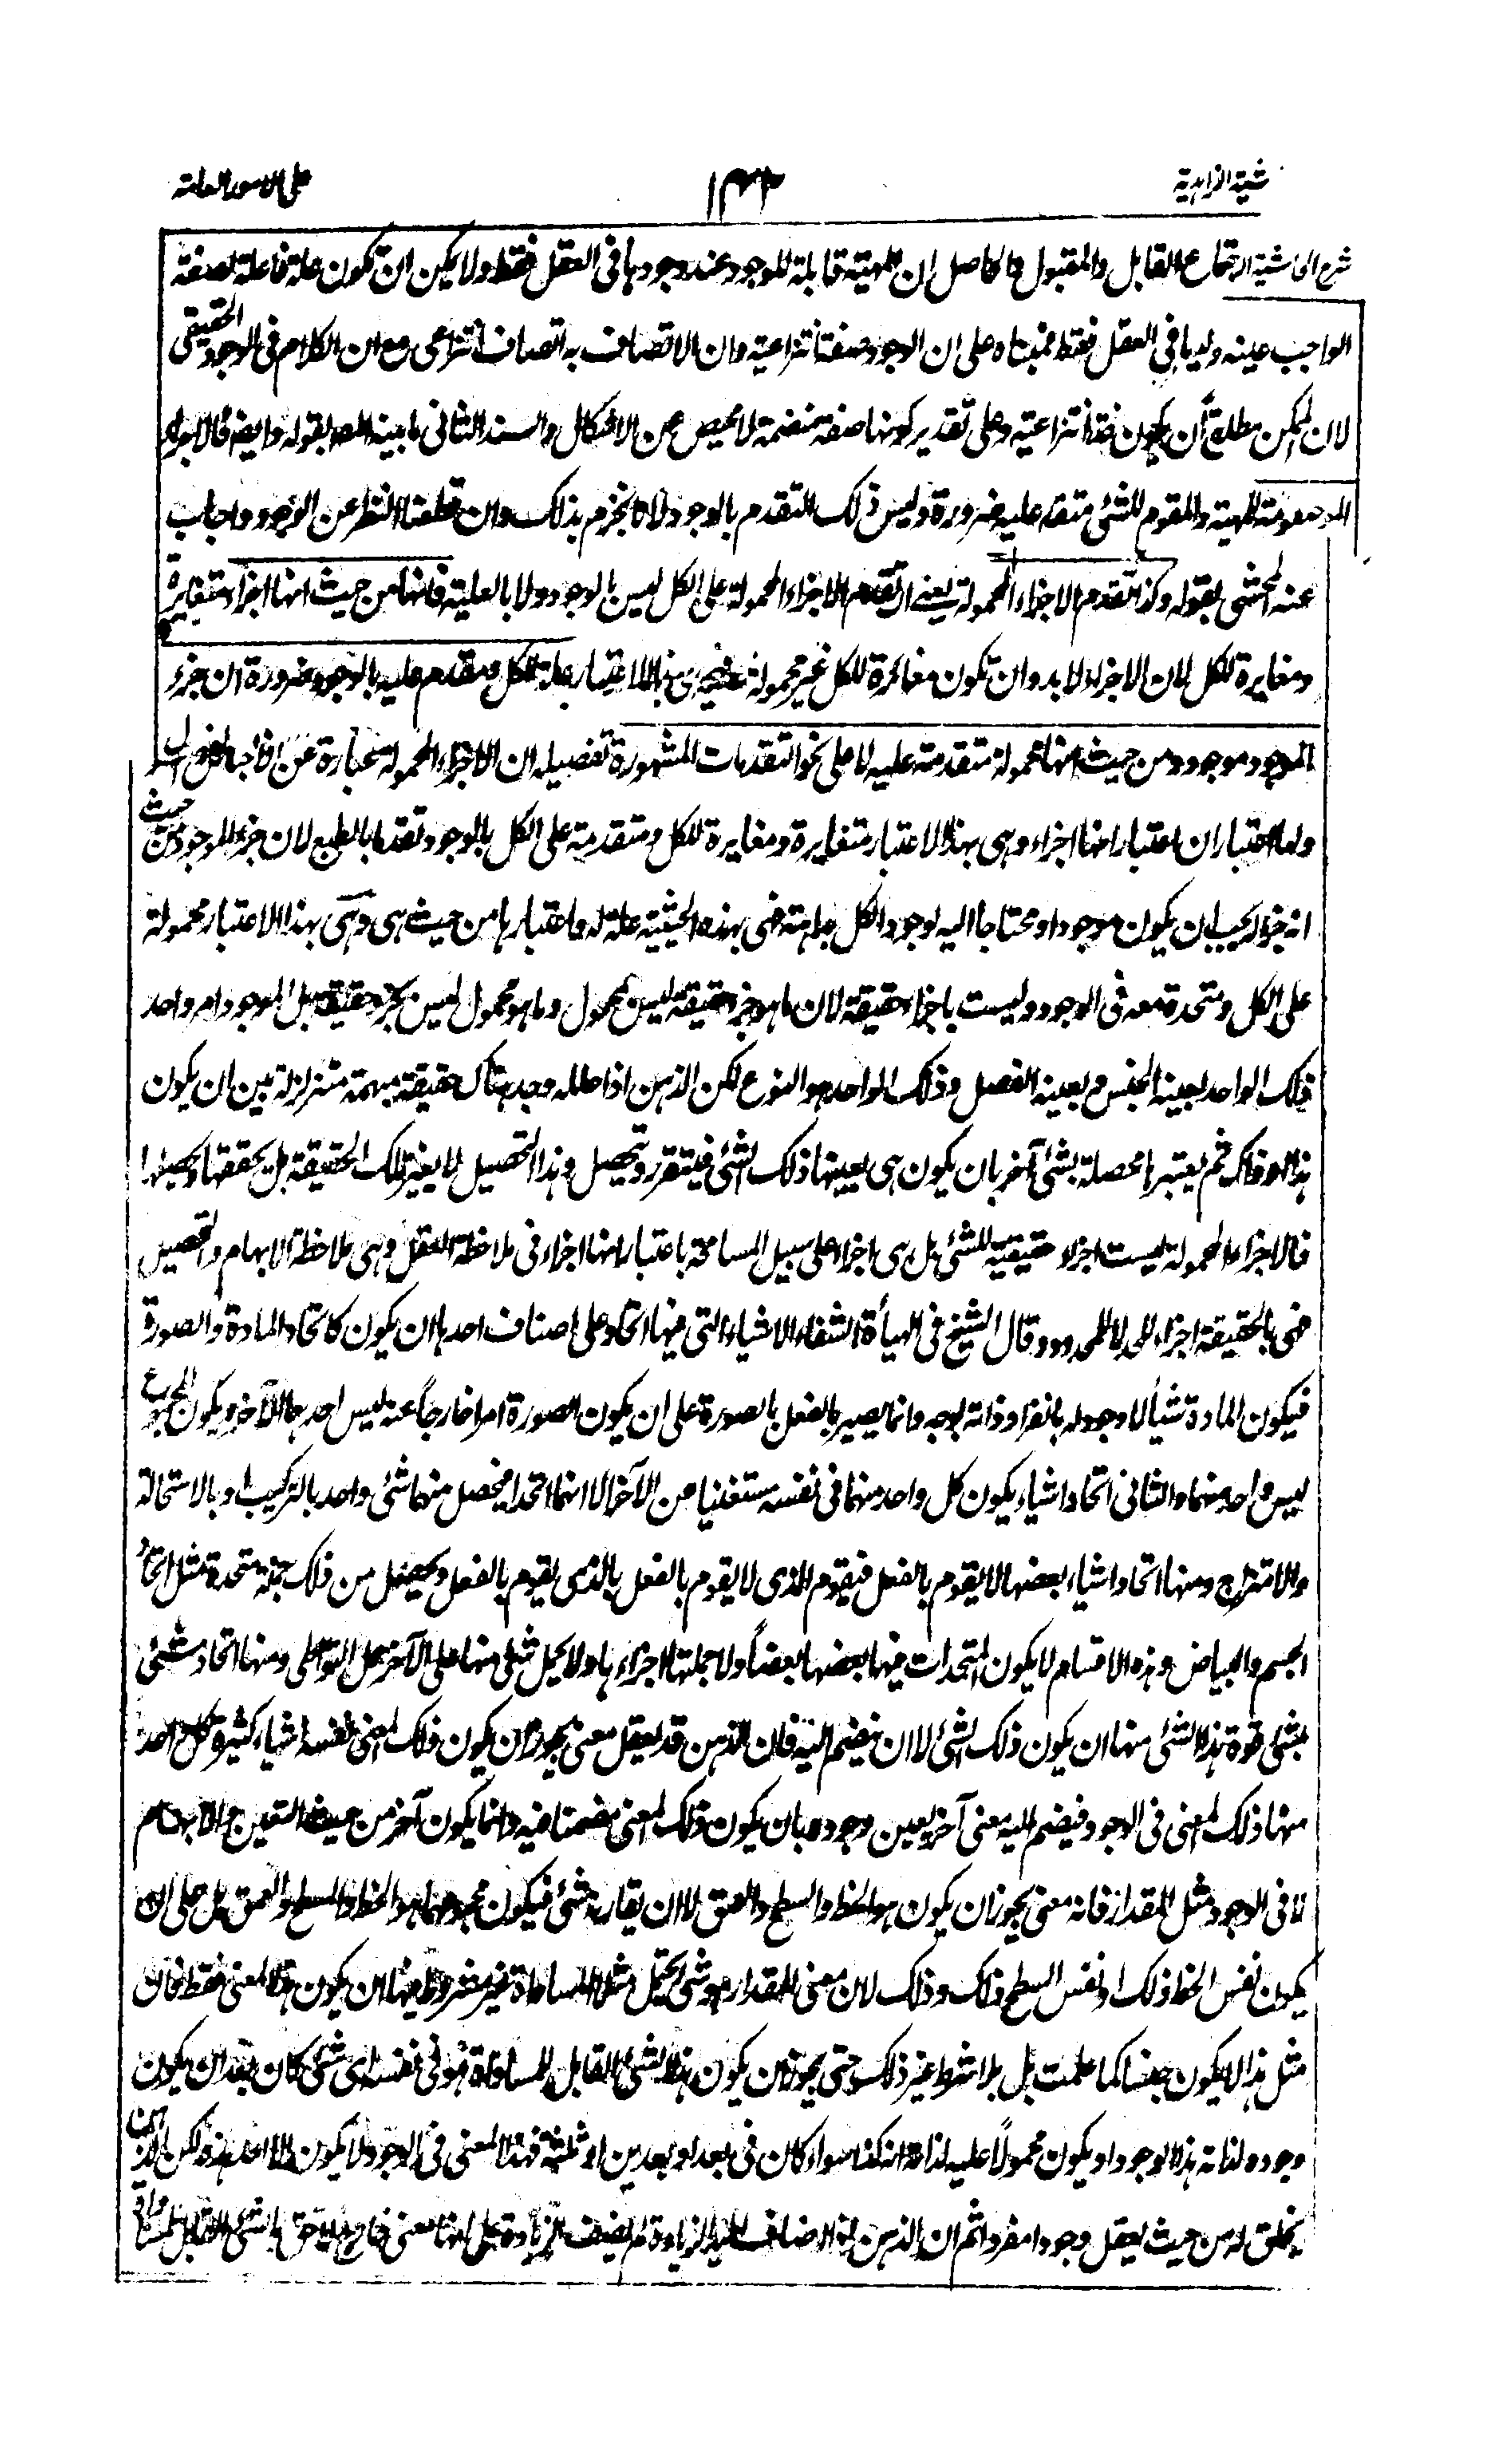 شية الزاهدية
١٣٢
على الامور العامة
شرح الحاشية اجتماع القابل والمقبول فالحاصل ان المهية قابلة للوجود عند وجودها فى العقل فقط ولا يمكن ان تكون علة فاعلة لصفة
الواجب عينه وليها فى العقل فقط فمبناه على ان الوجود صفة انتزاعية وان الاتصاف به اتصاف انتزاعى مع ان الكلام فى الوجود الحقيقى
لان الممكن مطلقا ان يكون صفة انتزاعية وعلى تقدير كونها صفة منضمة لا محيص عن الاشكال والسند الثانى ما بينه المصـ بقوله وايضا فالاجزاء
المقومة للمهية والمقوم للشئ متقدم عليه ضرورة وليس ذلك التقدم بالوجود لانا نجزم بذلك وان قطعنا النظر عن الوجود واجاب
عنه المحشى بقوله وكذا تقدم الاجزاء المحمولة يعنى ان تقدم الاجزاء المحمولة على الكل ليس بالوجود ولا بالعلية فانها من حيث انها اجزاء متغايرة
ومغايرة للكل لان الاجزاء لا بد وان تكون مغائرة للكل غير محمولة عليه فهى بهذا الاعتبار علة للكل ومتقدم عليه بالوجود ضرورة ان جزء
الموجود موجود ومن حيث انها محمولة متقدمة عليه لا على نحو التقدمات المشهورة تفصيله ان الاجزاء المحمولة عبارة عن الاجناس والفصول
ولها اعتباران اعتبار انها اجزاء وهى بهذا الاعتبار متغايرة ومغايرة للكل ومتقدمة على الكل بالوجود تقدما بالطبع لان جزء الموجود من حيث
انه جزء له يجب ان يكون موجودا ومحتاجا اليه لوجود الكل علة مته فهى بهذه الحيثية علة له واعتبارها من حيث هى وهى بهذا الاعتبار محمولة
على الكل ومتحدة معه فى الوجود وليست باجزاء حقيقة لان ما هو جزء حقيقة ليس بمحمول وما هو محمول ليس بجزء حقيقة بل الموجود امر واحد
ذلك الواحد بعينه الجنس وبعينه الفصل وذلك الواحد هو النوع لكن الذهن اذا حلله وجد هناك حقيقة مبهمة متزلزلة بين ان يكون
هذا او ذاك ثم يعتبرها محصلة بشئ آخر بان يكون هى بعينها ذلك الشئ فيتقرر وتحصل وهذا التحصيل لا يغير تلك الحقيقة بل يحققها ويحصلها
فالاجزاء المحمولة ليست اجزاء حقيقية للشئ بل هى اجزاء على سبيل المسامحة باعتبار انها اجزاء فى ملاحظة العقل وهى ملاحظة الابهام والتحصيل
فهى بالحقيقة اجزاء للحد لا للمحدود وقال الشيخ فى الهيأة الشفاء الاشياء التى فيها اتحاد على اصناف احدها ان يكون كاتحاد المادة والصورة
فيكون المادة شيأ لا وجود له بانفراد ذاته بوجه وانما يصير بالفعل بالصورة على ان يكون الصورة امرا خارجا عنه ليس احدهما الآخر ويكون المجموع
ليس واحد منهما والثانى اتحاد اشياء يكون كل واحد منها فى نفسه مستغنيا من الآخر الا انها اتحدا فحصل منها شئ واحد بالتركيب او بالاستحالة
والامتزاج ومنها اتحاد اشياء بعضها لا يقوم بالفعل فيقوم الذى لا يقوم بالفعل بالذى يقوم بالفعل ويحصل من ذلك جملة متحدة مثل اتحاد
الجسم والبياض وهذه الاقسام لا يكون المتحدات فيها بعضها بعضا ولا جملتها اجزاءها ولا يحمل شئ منها على الآخر حمل التواطى ومنها اتحاد شئ
بشئ قوة هذا الشئ منها ان يكون ذلك الشئ لا ان ينضم اليه فان الذهن قد يعقل معنى يجوز ان يكون ذلك المعنى نفسه اشياء كثيرة كل واحد
منها ذلك المعنى فى الوجود فيضم اليه معنى آخر يعين وجوده بان يكون ذلك المعنى مضمنا فيه وانما يكون آخر من حيث التعين والابهام
لا فى الوجود مثل المقدار فانه معنى يجوز ان يكون هو الخط والسطح والعمق لا ان يقارنه شئ فيكون مجموعهما هو الخط والسطح والعمق بل على ان
يكون نفس الخط ذلك او نفس السطح ذلك وذلك لان معنى المقدار هو شئ يحتمل مثلا المساواة غير مشروط فيها ان يكون هذا المعنى فقط فان
مثل هذا لا يكون جنسا كما علمت بل بلا شرط غير ذلك حتى يجوز ان يكون هذا الشئ القابل للمساواة هو فى نفسه اى شئ كان بعد ان يكون
وجوده لذاته هذا الوجود او يكون محمولا عليه لذاته انه كذا سواء كان فى بعد او بعدين او ثلثة فهذا المعنى فى الوجود لا يكون الا احد هذه لكن الذهن
يخلق له من حيث يعقل وجودا مفردا ثم ان الذهن اذا اضاف اليه الزيادة لم يضف الزيادة على انها معنى خارج لاحق بالشئ القابل للمساواة